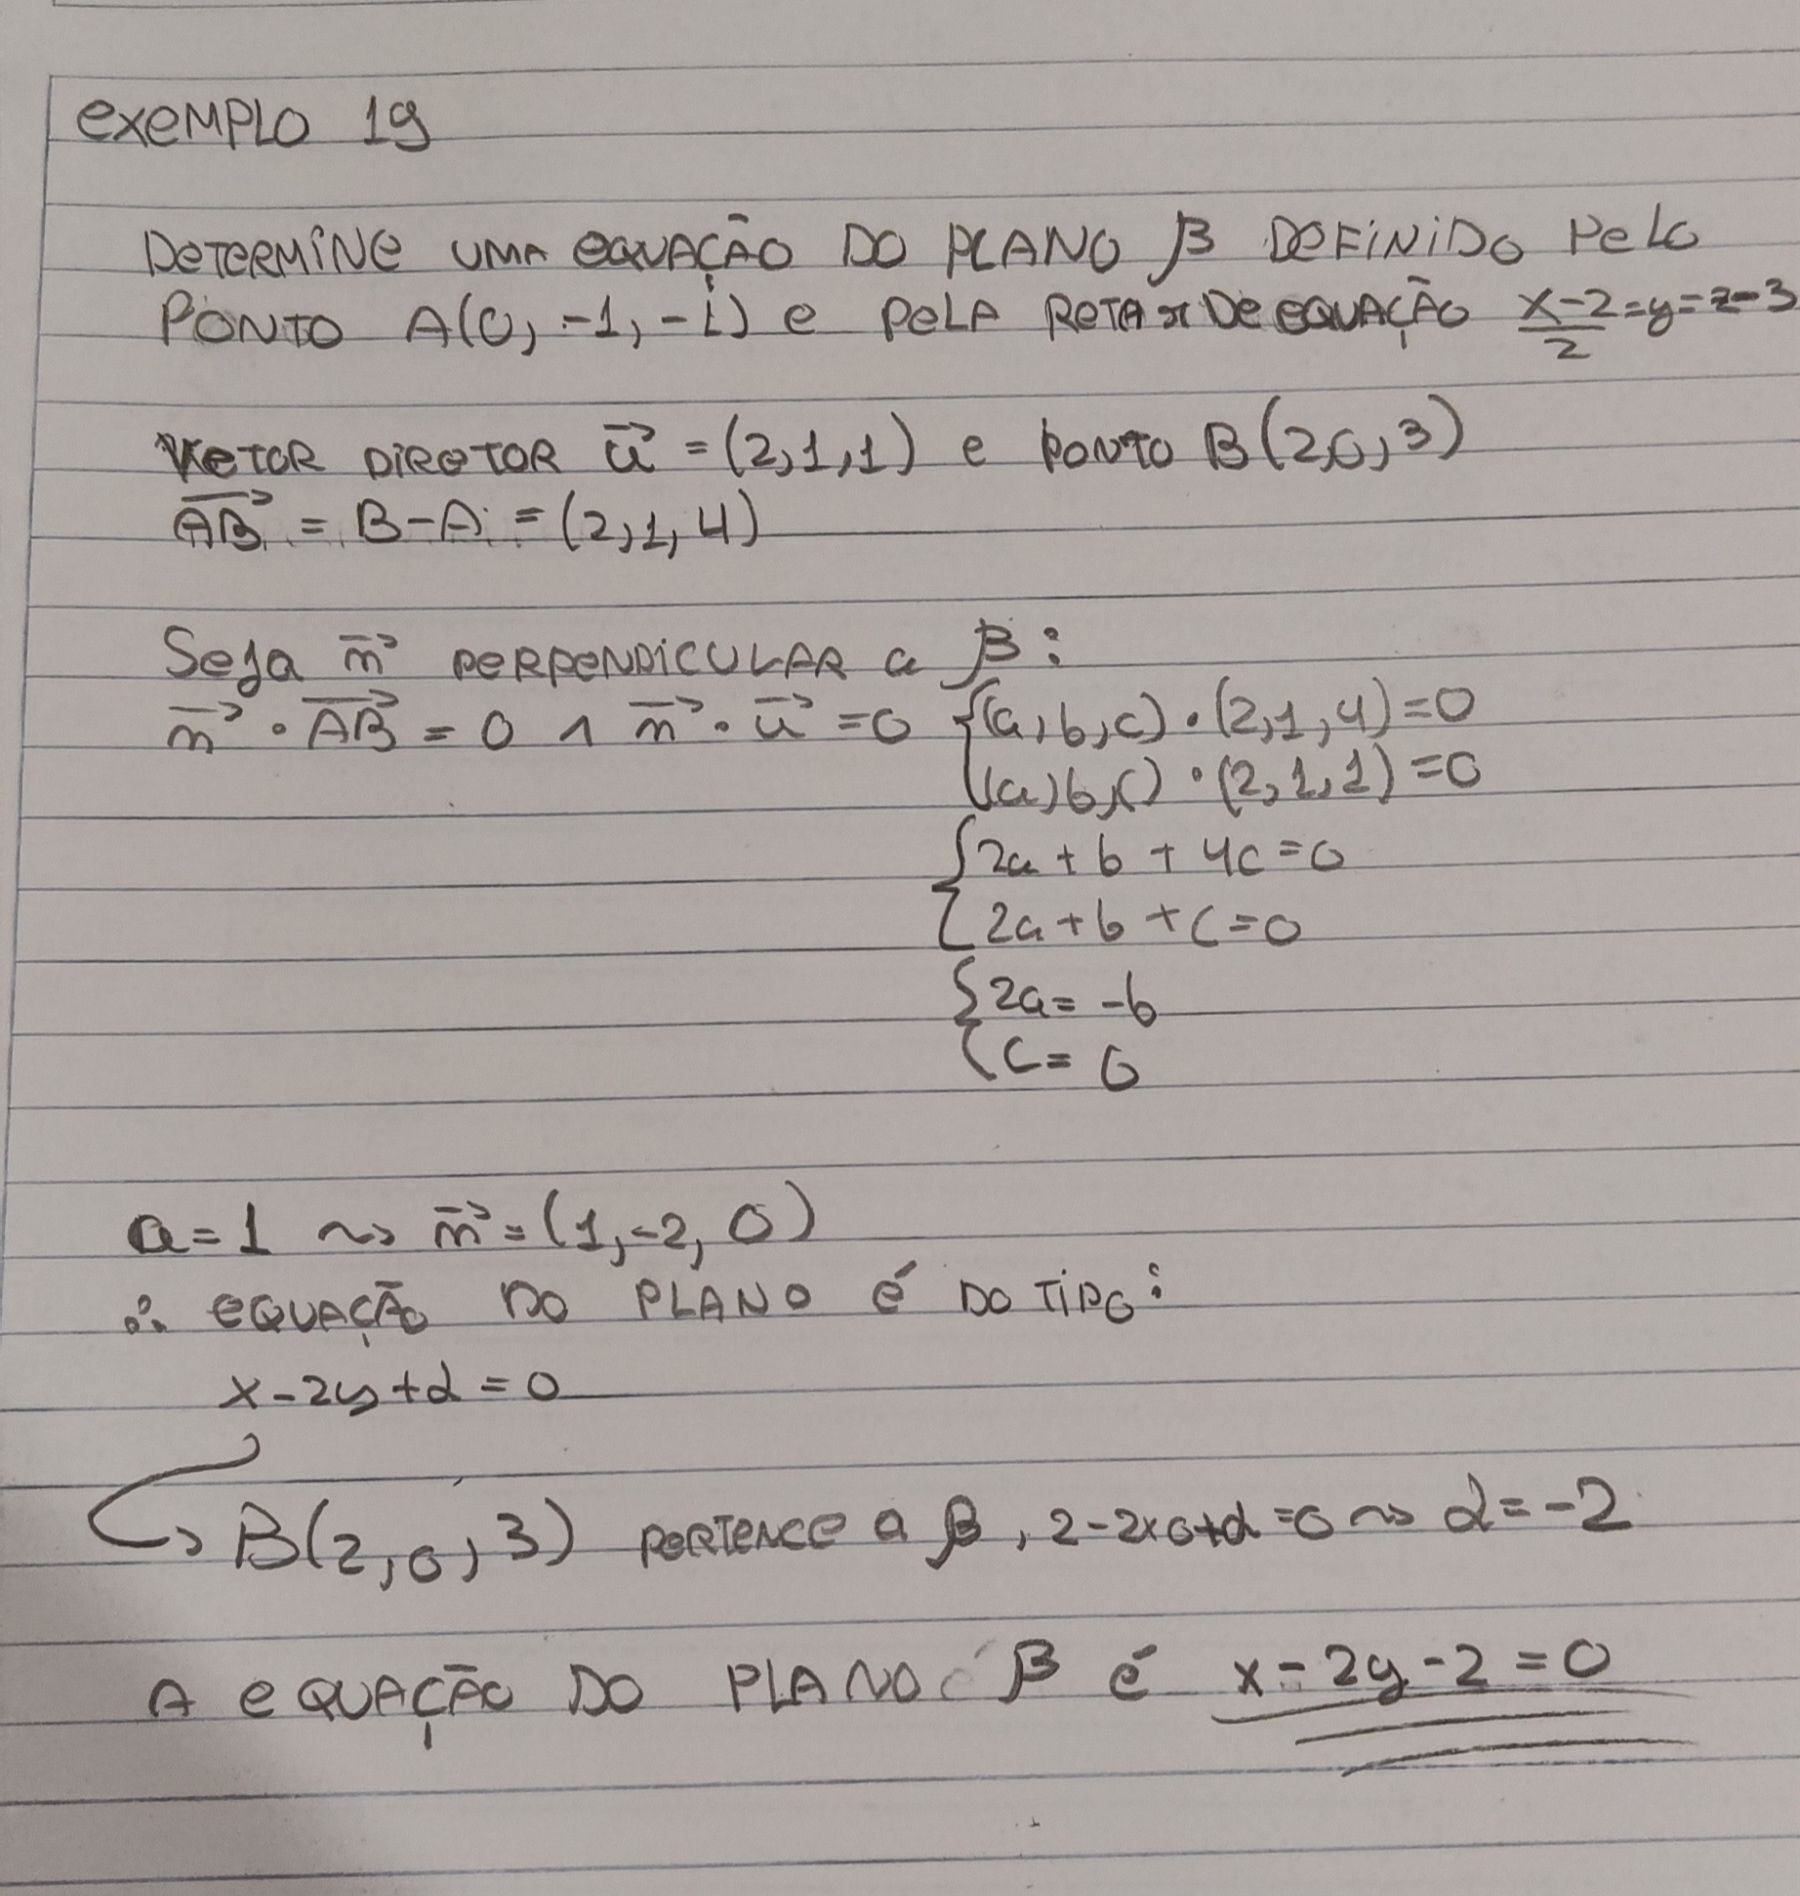 exemplo 19
Determine uma equação do plano β definido pelo
ponto A(0, -1, -1) e pela reta r de equação (x-2)/2 = y = z-3
Vetor diretor u⃗ = (2,1,1) e ponto B(2,0,3)
AB⃗ = B-A = (2,1,4)
Seja n⃗ perpendicular a β:
n⃗ · AB⃗ = 0 ∧ n⃗ · u⃗ = 0 {(a,b,c) · (2,1,4)=0
(a,b,c) · (2,1,1)=0
{2a + b + 4c = 0
2a + b + c = 0
{2a = -b
c = 0
a = 1 ⇝ n⃗ = (1,-2,0)
∴ equação do plano é do tipo:
x-2y+d=0
↪ B(2,0,3) pertence a β, 2-2×0+d=0 ⇝ d=-2
A equação do plano β é x-2y-2=0